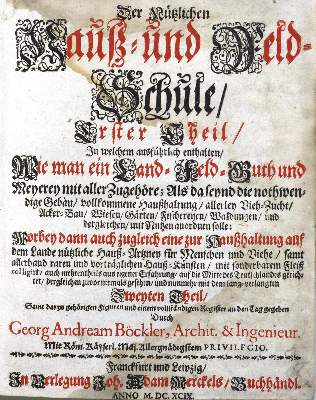 Der Nützlichen
Hauß- und Feld-
Schule/
Erster Theil/
In welchem ausführlich enthalten/
Wie man ein Land- Feld-Guth und
Meyerey mit aller Zugehöre; Als da seynd die nothwen-
dige Gebäu/ vollkommene Haußhaltung/ allerley Vieh-Zucht/
Acker-Bau/ Wiesen/ Gärten/ Fischereyen/ Waldungen/ und
dergleichen/ mit Nutzen anordnen solle:
Worbey dann auch zugleich eine zur Haußhaltung auf
dem Lande nützliche Hauß-Artzney für Menschen und Viehe/ samt
allerhand raren und vorträglichen Hauß-Künsten/ mit sonderbarem Fleiß
colligirt/ auch mehrentheils aus eigener Erfahrung/ auf die Mitte des Teutschlandes gerich-
tet/ dergleichen zuvor niemals gesehen/ und nunmehr mit dem lang-verlangten
Zweyten Theil/
Samt darzu gehörigen Figuren und einem vollständigen Register an den Tag gegeben
Durch
Georg Andream Böckler, Archit. & Ingenieur.
Mit Röm. Käyserl. Maj. Allergnädigstem PRIVILEGIO.
Franckfurt und Leipzig/
In Verlegung Joh. Adam Merckels/ Buchhändl.
ANNO M. DC. XCIX.